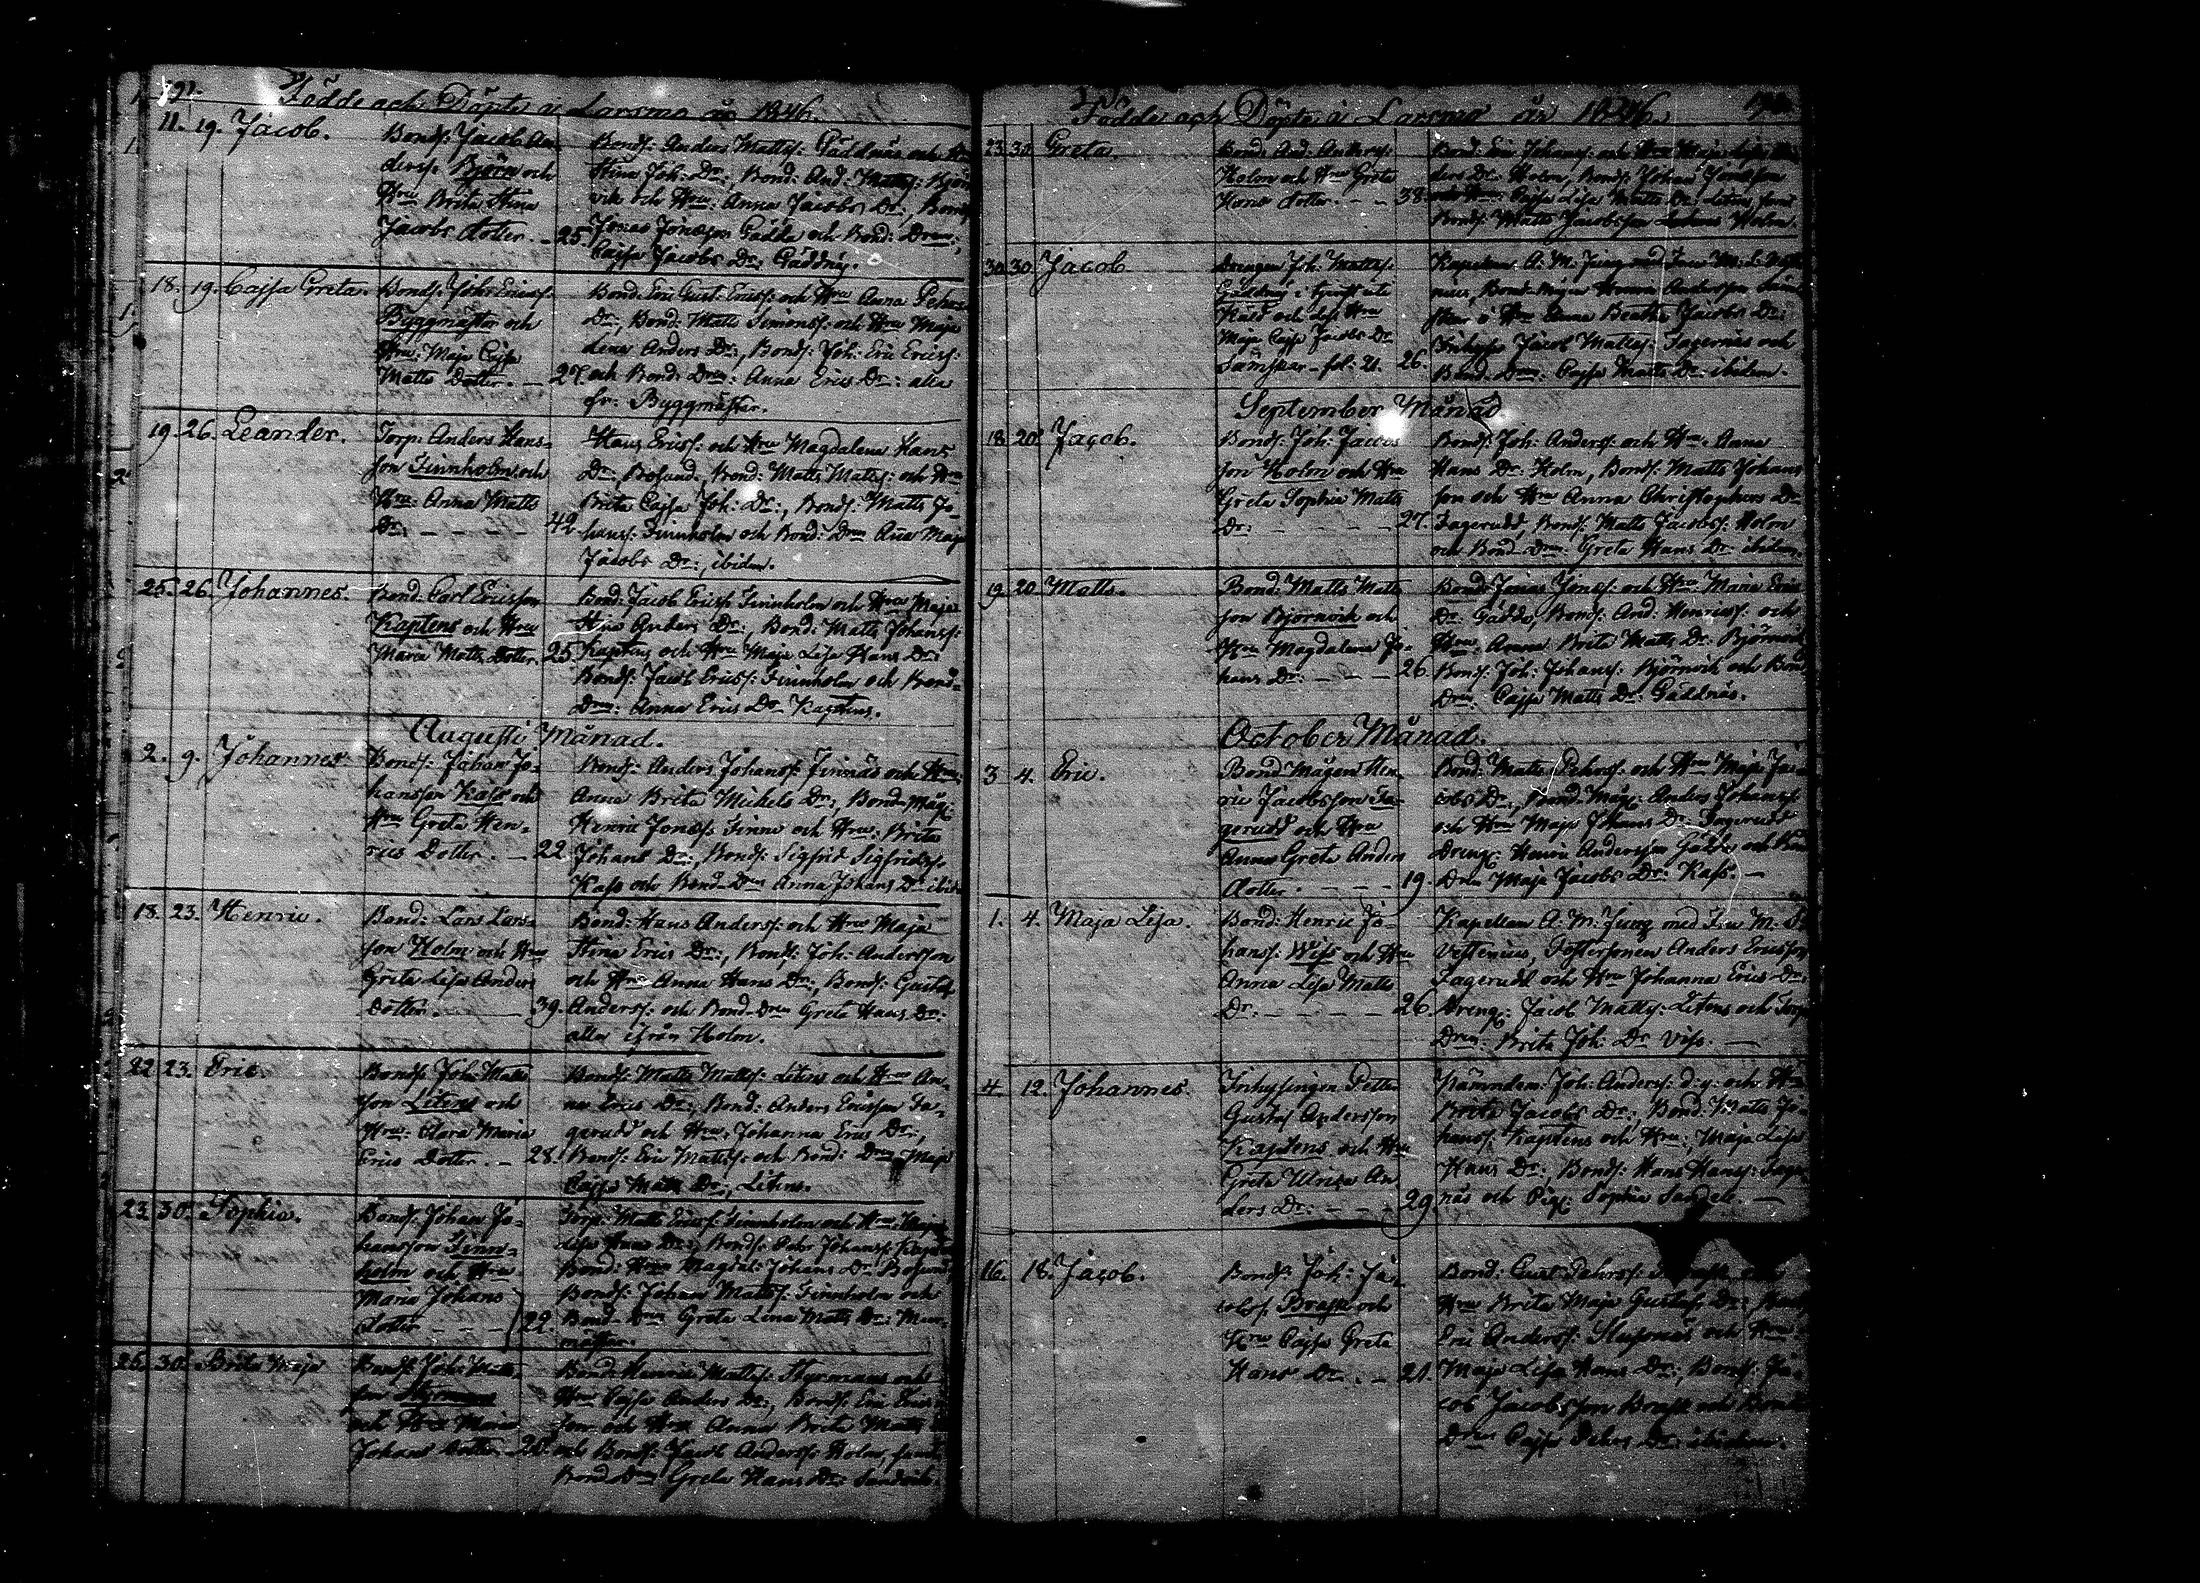 192.
Födde och Döpte i Larsmo år 1846.
11. 19. Jacob.
Bonds: Jacob An
derss: Björn och
Hru Brita Stina
Jacobs dotter. - 25.
Bonds: Anders Mattss: Gäddnäs och
Stina Joh: Dr:, Bond: And: Mattss: Björn
vik och Hru: Anna Jacobs Dr:, Bonds:
Jonas Jonsson Gädda och Bond: Drn:
Cajsa Jacobs Dr: Gäddnäs.
18. 19. Cajsa Greta.
Bonds: Joh: Ericss:
Byggmästar och
Hru: Maja Cajsa
Matts Dotter. - 27.
Bond: Eric Gust: Ericss: och Hru Anna Pehrs
Dr:, Bond: Matts Simonss: och Hru Maja
Lena Anders Dr:, Bonds: Joh: Eric Ericss:
och Bond: Drn: Anna Erics Dr: alla
fr: Byggmästar.
19. 26. Leander.
Torp: Anders Hans-
son Finnholm och
Hru: Anna Matts
Dr: - - - - 42.
Hans Ericss: och Hru Magdalena Hans
Dr:, Bosund, Bond: Matts Mattss: och Hru
Brita Cajsa Joh: Dr:, Bonds: Matts Jo-
hanss: Finnholm och Bond: Drn Anna Maja
Jacobs Dr:, ibidem.
25. 26. Johannes.
Bond: Carl Ericsson
Kaptens och Hru
Maria Matts Dotter 25.
Bond: Jacob Ericss: Finnholm och Hru Maja
Stina Anders Dr:, Bond: Matts Johanss:
Kaptens och Hru Maja Lisa Hans Dr:
Bonds: Jacob Ericss: Finnholm och Bond-
Drn: Anna Erics Dr Kaptens.
Augusti Månad.
2. 9. Johannes
Bonds: Johan Jo-
hansson Kass och
Hru Greta Hen-
rics Dotter. - 22.
Bonds: Anders Johanss: Finnäs och Hru:
Anna Brita Michels Dr:, Bond-Måg:
Henric Jonass: Finne och Hru: Brita
Johans Dr:, Bonds: Sigfrid Sigfridss:
Kass och Bond-Drn Anna Johans Dr: ibid
18. 23. Henric.
Bond: Lars Lars-
son Holm och Hru
Greta Lisa Anders
Dotter. - 39.
Bond: Hans Anderss: och Hru Maja
Stina Erics Dr:, Bonds: Joh: Andersson
och Hru Anna Hans Dr:, Bonds: Gustaf
Anderss: och Bond-Drn Greta Hans Dr:
alla ifrån Holm.
22. 23. Eric.
Bonds: Joh: Matts
son Litens och
Hru: Clara Maria
Erics Dotter. - 28.
Bonds: Matts Mattss: Litens och Hru An-
na Erics Dr:, Bond: Anders Ericsson Fa-
gerudd och Hru: Johanna Erics Dr:,
Bonds: Eric Mattss: och Bond: Drn Maja
Cajsa Matts Dr:, Litens.
23. 30. Sophia.
Bonds: Johan Jo-
hansson Finn-
holm och Hru
Maria Johans
Dotter - - - 22.
Torp: Matts Ericss: Finnholm och Hru: Maja
Lisa Hans Dr:, Bonds: Pehr Johanss:
Bond: Hru Magdal: Johans Dr Bosund,
Bonds: Johan Mattss: Finnholm och
Bond: Drn Greta Lena Matts Dr:
mästar.
25. 30. Brita Maja
Bonds: Joh: Matts-
son Styrmans
och Hru Maria
Johans Dotter - 26.
Bond: Henric Mattss: Styrmans och
Hru Cajsa Anders Dr:, Bonds: Eric Erics
son och Hru Anna Brita Matts
och Bonds: Jacob Anderss: Holm, samt
Bond Drn Greta Hans Dr: Sandvik.
Födde och Döpte i Larsmo år 1846.
23. 30. Greta.
Bond: And: Anderss:
Holm och Hru Greta
Hans dotter. - - 38.
Bond: Eric Johanss: och Hru Maja Lisa An-
ders Dr: Holm, Bonds: Johan Jonasson
och Hru: Cajsa Lisa Matts Dr: Litens, samt
Bonds: Matts Jacobsson Holm.
30. 30. Jacob
Drengen Joh: Mattss:
Gäddnäs i tjenst uti
Kass och dess Hru
Maja Cajsa Jacobs Dr
Sämskar - fol: 21. 26.
Kapellan A: M: Jung med Fru M: S: Veste-
nius, Bond-Mågen Anders Andersson
och Hru Anna Beatha Jacobs Dr:
Inhyses Jacob Mattss: Fagernäs och
Bond: Drn: Cajsa Matts Dr: ibidem.
September Månad
18. 20. Jacob.
Bonds: Joh: Jacobs
son Holm och Hru
Greta Sophia Matts
Dr: - - - - 27.
Bonds: Joh: Anderss: och Hru: Anna
Hans Dr: Holm, Bonds: Matts Johans
son och Hru Anna Christophers Dr
Fagerudd, Bonds: Matts Jacobss: Holm
och Bond Drn: Greta Hans Dr: ibidem.
19. 20. Matts.
Bond: Matts Matts
son Björnvik och
Hru Magdalena Jo-
hans Dr: - - - 26.
Bonds: Jonas Jonss: och Hru Maria Erics
Dr: Gädda, Bonds: And: Henricss: och
Hru: Anna Brita Matts Dr: Björnvik
Bonds: Joh: Johanss: Björnvik och Bond
Drn: Cajsa Matts Dr: Gäddnäs.
October Månad.
3 4. Eric.
Bond Mågen Hen-
ric Jacobsson Fa-
gerudd och Hru
Anna Greta Anders
dotter. - - - 19.
Bond: Matts Pehrss: och Hru Maja Ja-
cobs Dr:, Bond-Måg: Anders Johanss:
och Hru Maja Johans Dr: Fagerudd
Dreng: Henric Andersson Gädda och Bond
Drn Maja Jacobs Dr: Kass. -
1. 4. Maja Lisa.
Bond: Henric Jo-
hanss: Wiss och Hru
Anna Lisa Matts
Dr: - - - - 26.
Kapellan A: M: Jung med Fru M: S:
Vestenius, Fostersonen Anders Ericsson
Fagerudd och Hru Johanna Erics Dr:
Dreng: Jacob Mattss: Litens och Torp
Drn: Brita Joh: Dr Viss. -
4. 12. Johannes.
Inhysingen Petter
Gustaf Andersson
Kaptens och Hru
Greta Ulrica An
ders Dr: - - - 29.
Nämndem: Joh: Anderss: d:y: och Hru
Brita Jacobs Dr:, Bond: Matts Jo
hanss: Kaptens och Hru: Maja Lisa
Hans Dr:, Bonds: Hans Hanss: Fager
näs och Pig: Sophia Sandell. -
16. 18. Jacob.
Bonds: Joh: Ja-
cobs: Brask och
Hru Cajsa Greta
Hans Dr: . - 21.
Bond: Gust: Pehrss:
Hru Brita Maja Gustafs Dr:
Eric Anderss: Slupsnäs och Hru:
Maja Lisa Hans Dr:, Bonds: Ja-
cob Jacobsson Brask och Bond
Drn Cajsa Pehrs Dr: ibidem.